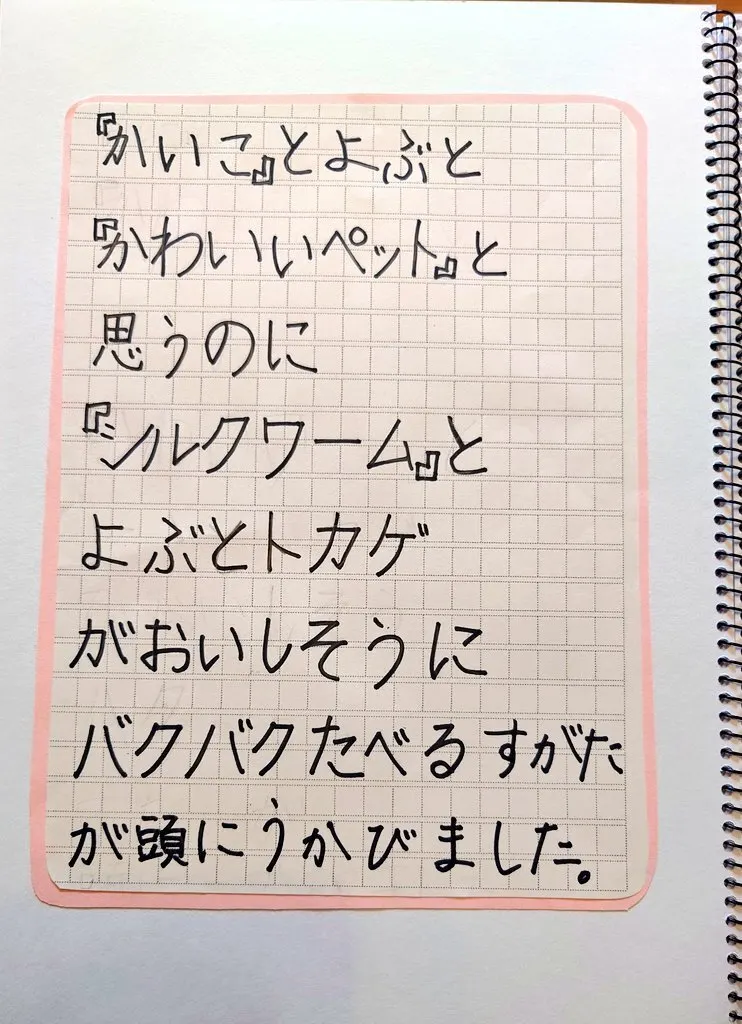 『かいこ』とよぶと
『かわいいペット』と
思うのに
『シルクワーム』と
よぶとトカゲ
がおいしそうに
バクバクたべるすがた
が頭にうかびました。